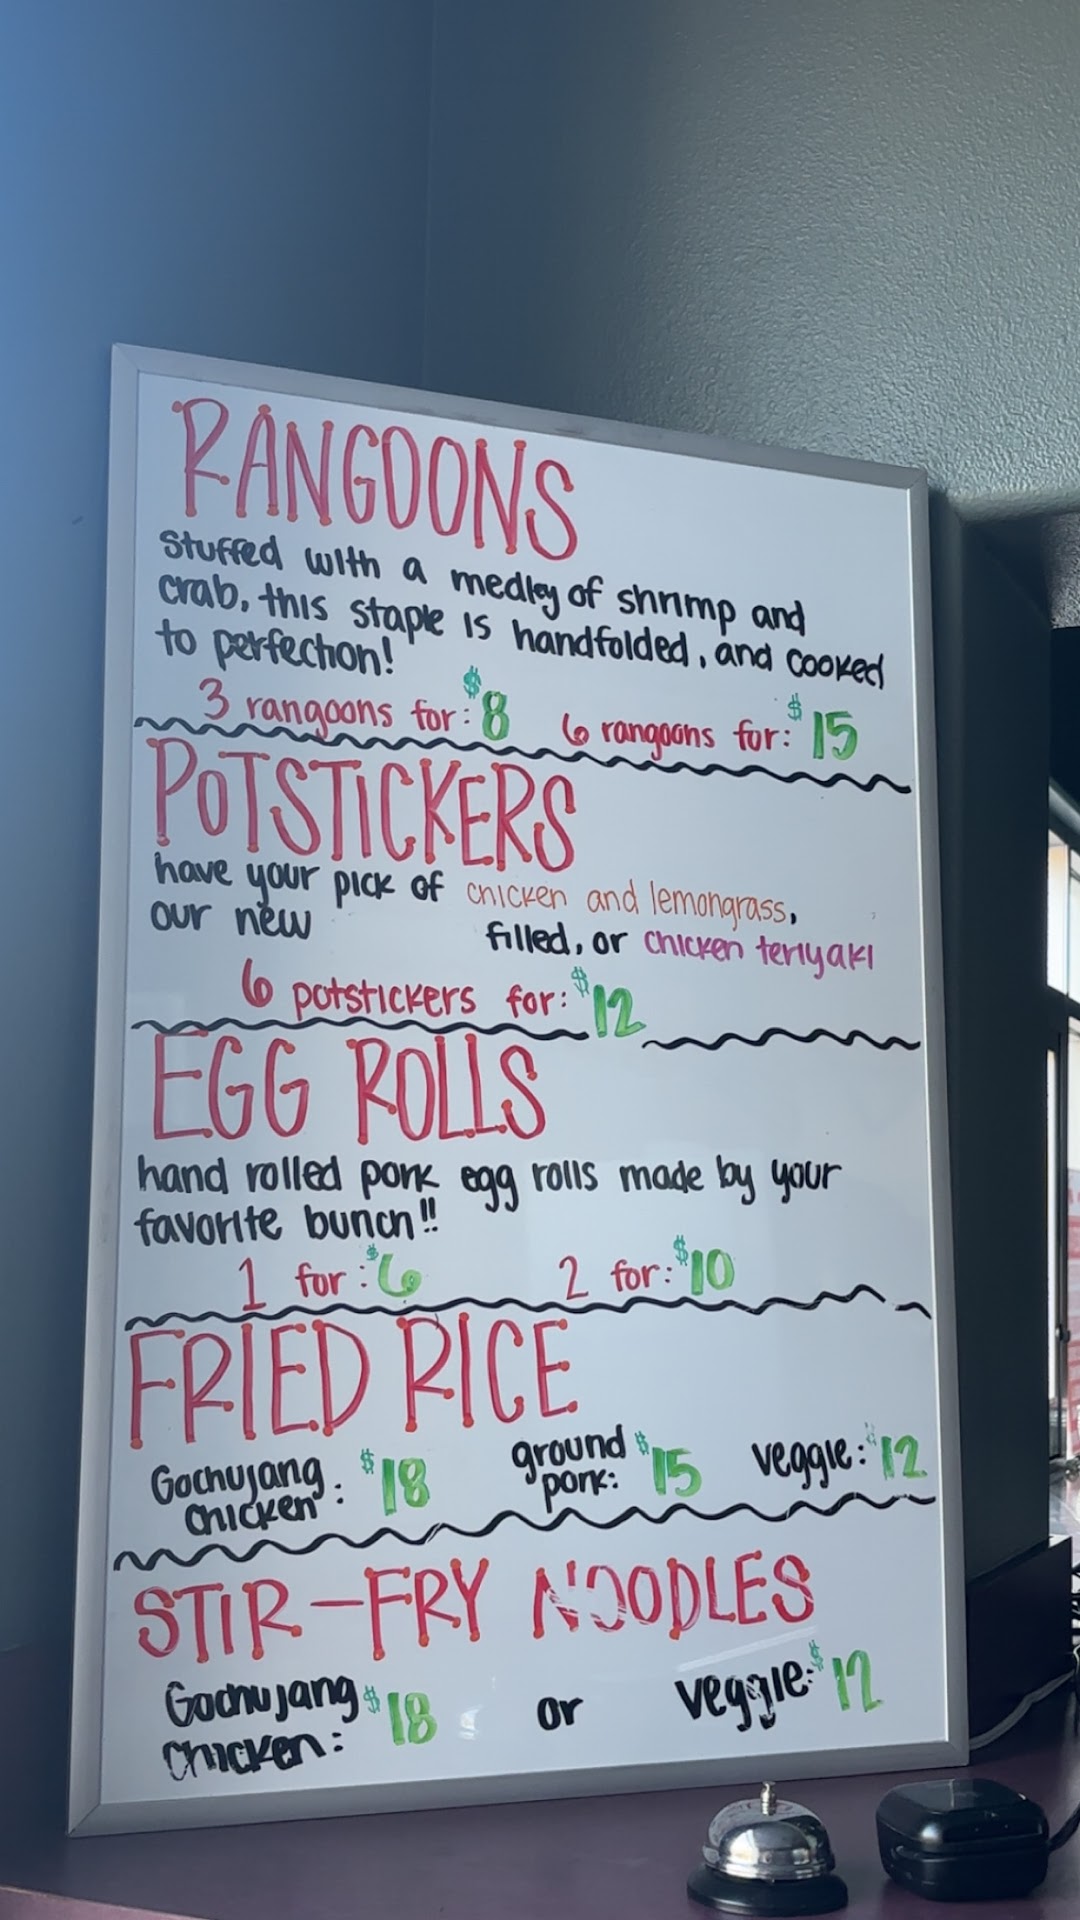 RANGOONS
Stuffed with a medley of shrimp and
crab, this staple is handfolded, and cooked
to perfection!
3 rangoons for: $8 6 rangoons for: $15
POTSTICKERS
have your pick of chicken and lemongrass,
our new filled, or chicken teriyaki
6 potstickers for: $12
EGG ROLLS
hand rolled pork egg rolls made by your
favorite bunch!!
1 for: $6 2 for: $10
FRIED RICE
Gochujang chicken: $18 ground pork: $15 veggie: $12
STIR-FRY NOODLES
Gochujang chicken: $18 or veggie: $12